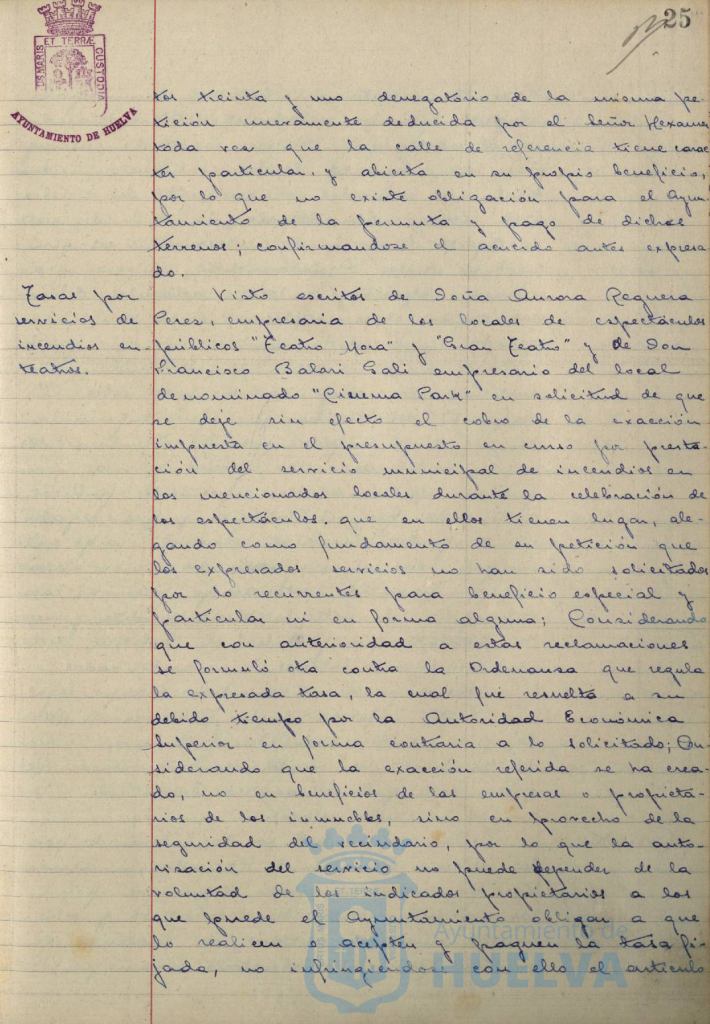 25
PORTUS MARIS ET TERRÆ CUSTODIA
AYUNTAMIENTO DE HUELVA
tos treinta y uno denegatorio de la misma pe-
tición nuevamente deducida por el Señor
toda vez que la calle de referencia tiene carac-
ter particular, y abierta en su propio beneficio,
por lo que no existe obligación para el Ayun-
tamiento de la permuta y pago de dichos
terrenos; confirmandose el acuerdo antes expresa-
do.
Tasas por
servicios de
incendios en
teatros.
Visto escritos de Doña Aurora Reguera
Perez, empresaria de los locales de espectáculos
públicos "Teatro Mora" y "Gran Teatro" y de Don
Francisco Balari Gali empresario del local
denominado "Cinema Park" en solicitud de que
se deje sin efecto el cobro de la exacción
impuesta en el presupuesto en curso por presta-
ción del servicio municipal de incendios en
los mencionados locales durante la celebración de
los espectáculos. que en ellos tienen lugar, ale-
gando como fundamento de su petición que
los expresados servicios no han sido solicitados
por lo recurrentes para beneficio especial y
particular ni en forma alguna; Considerando
que con anterioridad a estas reclamaciones
se formuló otra contra la Ordenansa que regula
la expresada tasa, la cual fué resuelta a su
debido tiempo por la Autoridad Económica
Superior en forma contraria a lo solicitado; Con-
siderando que la exacción referida se ha crea-
do, no en beneficios de las empresas o propieta-
rios de los inmuebles, sino en provecho de la
seguridad del vecindario, por lo que la auto-
risación del servicio no puede depender de la
voluntad de los indicados propietarios a los
que puede el Ayuntamiento obligar a que
lo realicen o acepten y paguen la tasa fi-
jada, no infringiendose con ello el articulo
Ayuntamiento de
HUELVA